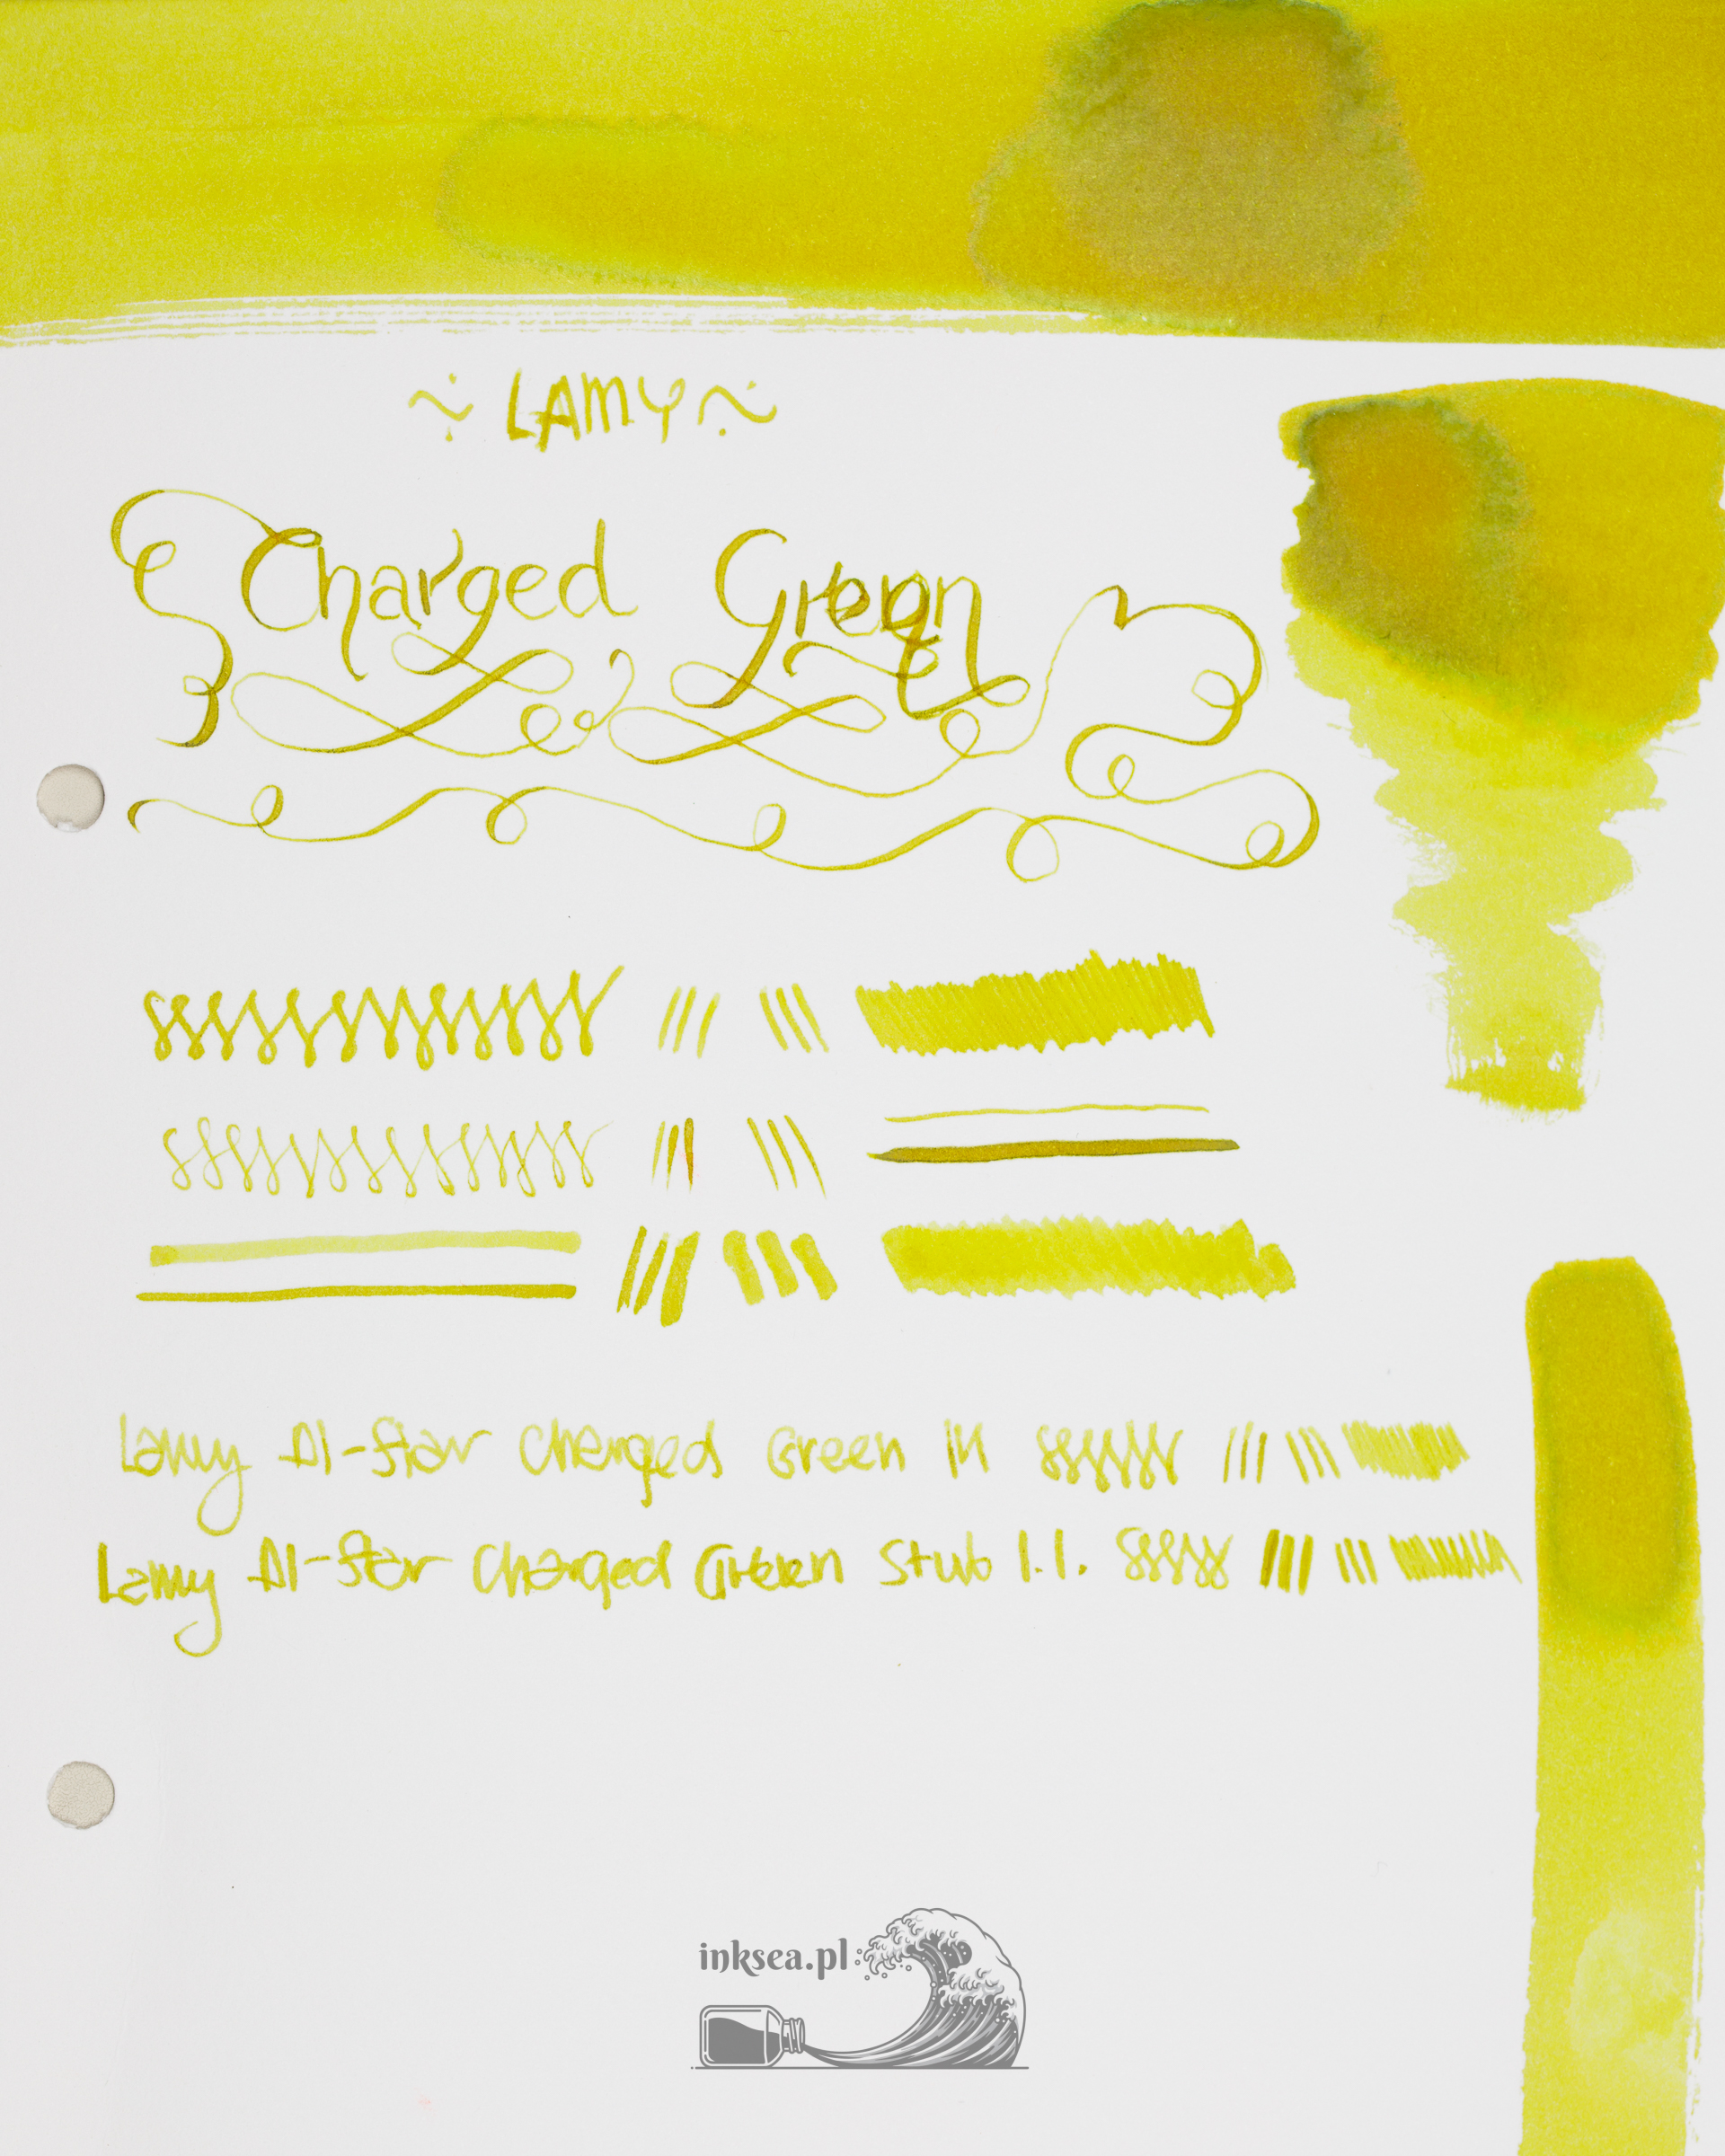 ~ LAMY ~
Charged Green
Lamy Al-Star Charged Green M
Lamy Al-Star Charged Green Stub 1.1.
inksea.pl